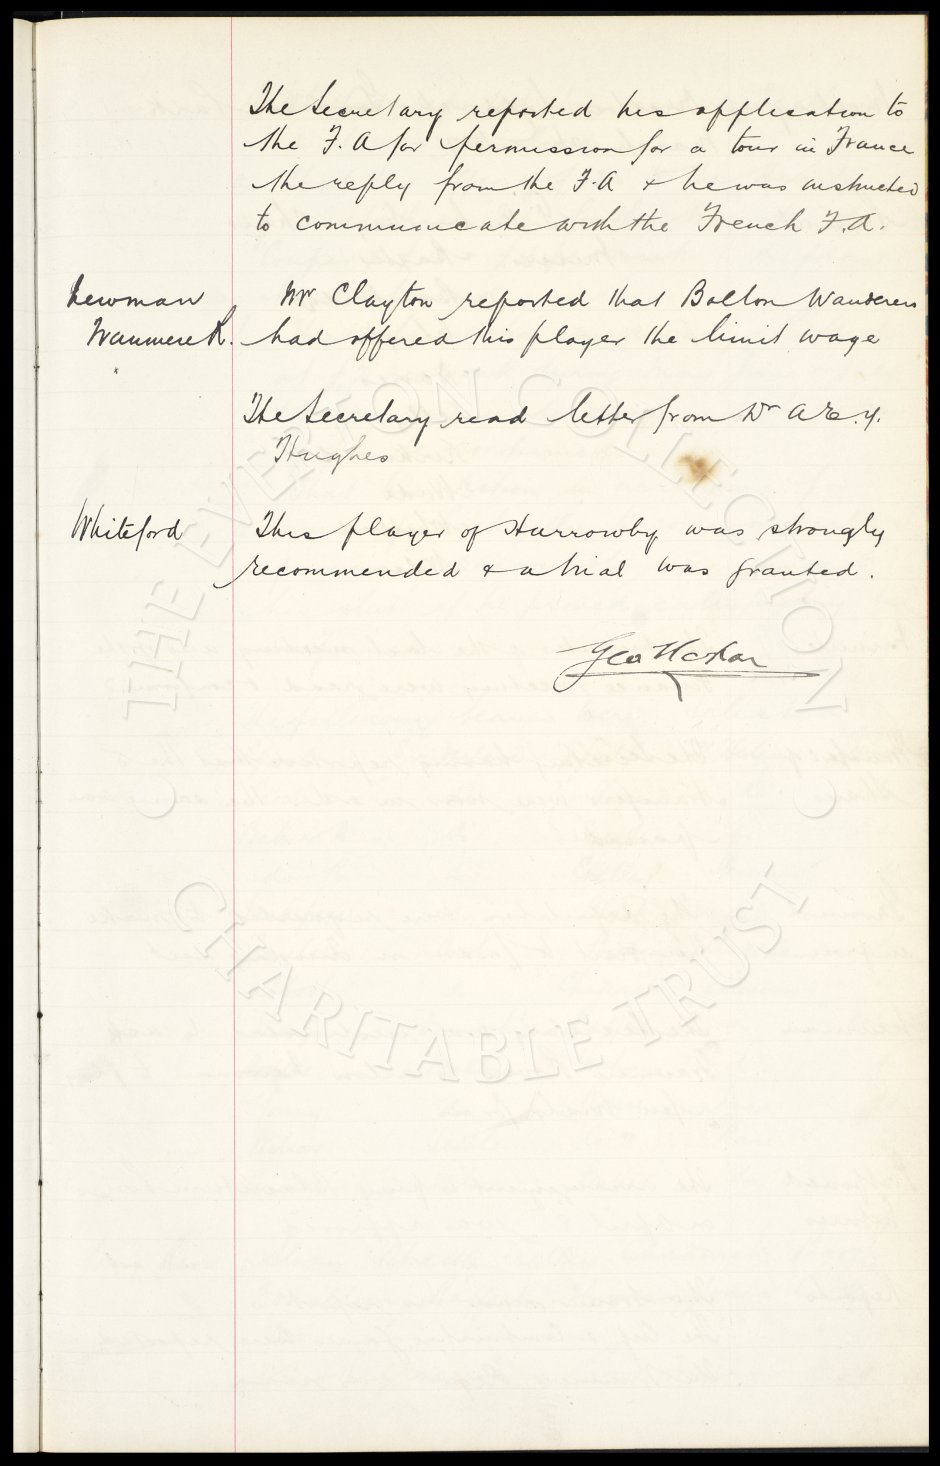 The Secretary reported his application to
the F. A for permission for a tour in France
the reply from the F. A & he was instructed
to communicate with the French F.A.
Newman
Tranmere R.
Mr Clayton reported that Bolton Wanderers
had offered this player the limit wage
The Secretary read letter from Dr A E. Y.
Hughes
Whiteford
This player of Harrowby was strongly
recommended & a trial was granted.
Geo
THE EVERTON COLLECTION
CHARITABLE TRUST